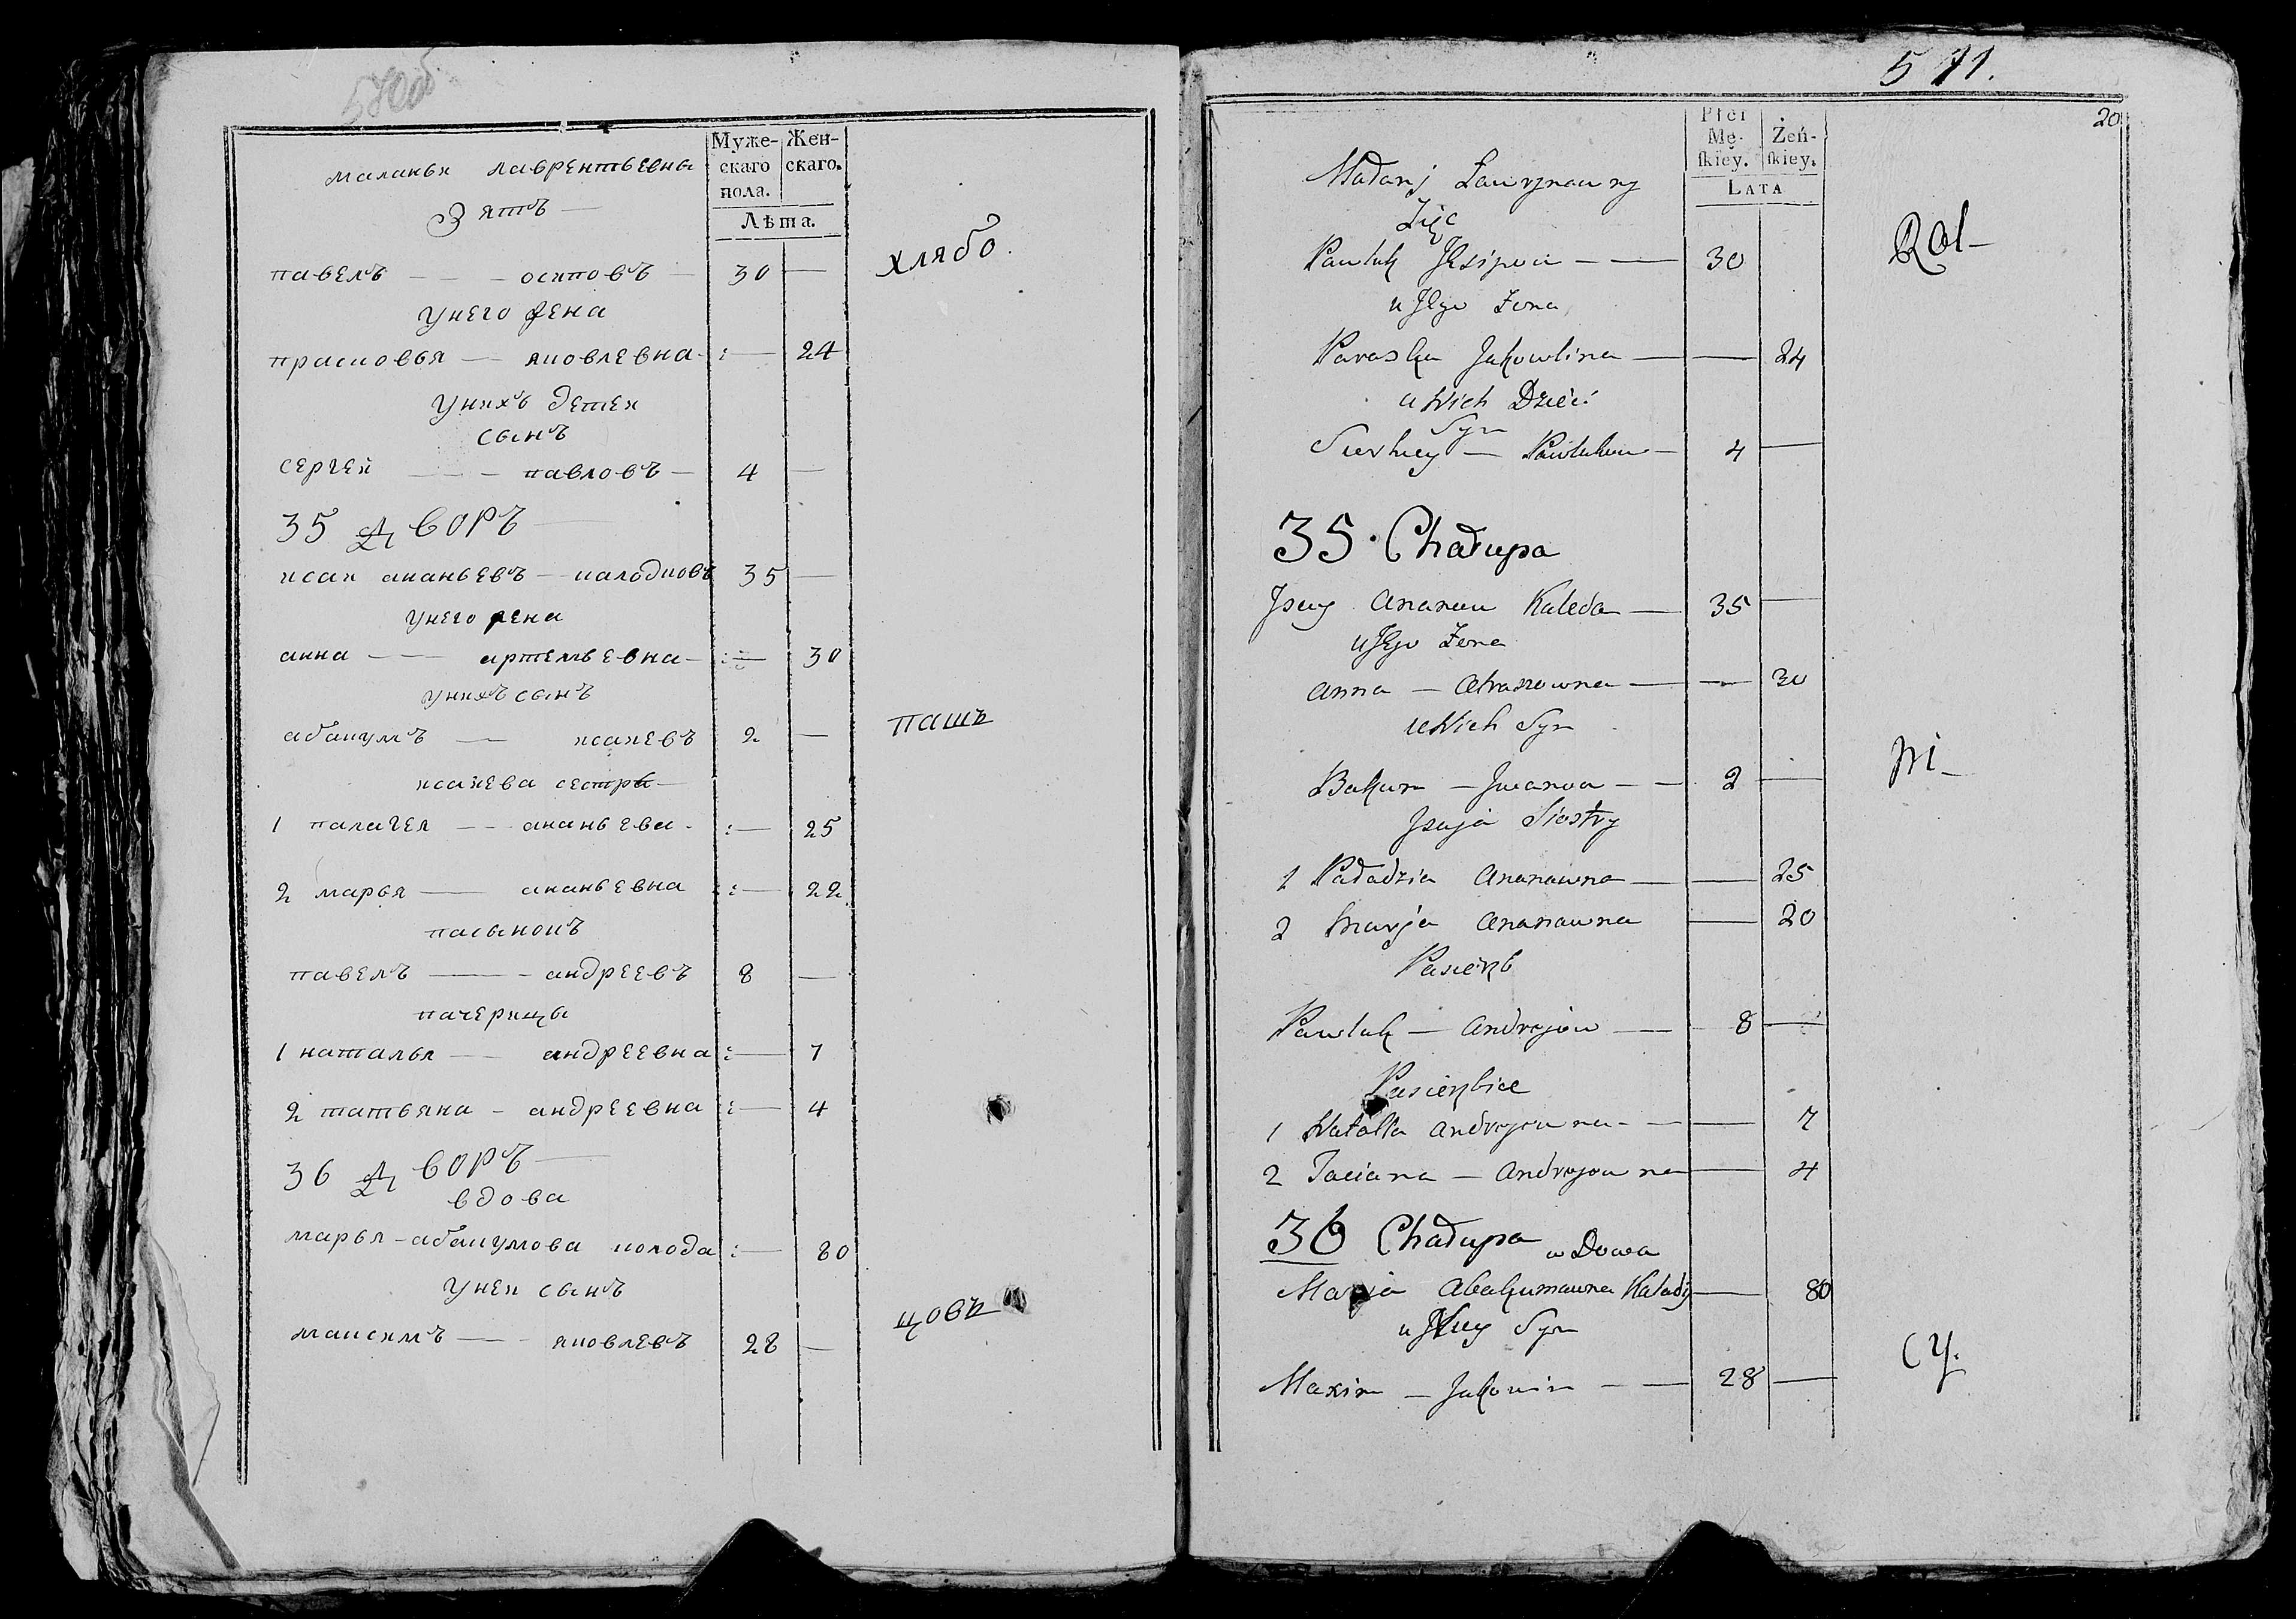 570об
Муже-
скаго
пола.
Жен-
скаго.
Лѣта.
маланья лаврентьевна
Зятъ —
павелъ — — — осиповъ — 30 —
хлябо.
унего жена
прасковья — яковлевна — 24
унихъ детей
сынъ
сергей — — — павловъ — 4 —
35 Дворъ —
исай ананьевъ — калодковъ 35 —
унего жена
анна — — артемьевна — 30
унихъ сынъ
абакумъ — исаиевъ 2 —
пашъ
исаиева сестра —
1 палагея — — ананьева — 25
2 марья — ананьевна — 22
пасынокъ
павелъ — — андреевъ 8 —
пачерицы
1 наталья — — андреевна — 7
2 татьяна — андреевна — 4
36 Дворъ —
вдова
марья — абакумова колода — 80
уней сынъ
цовъ
максимъ — — яковлевъ 28 —
571.
20
Płci
Mę-
ſkiey.
Żeń-
ſkiey.
LATA
Małanj Ławrynowny
Zięc
Pawluk Jesipow — — 30
Rol-
u Jego Żona
Paraska Jakowlina — — 24
u Nich Dzieci
Syn
Sierhiey — Pawlukow — 4 —
35. Chałupa
Jsay Ananow Kaleda — 35 —
u Jego Żona
Anna — — — 30
u Nich Syn
Bakum — — — 2 —
ni-
Jsaja Siostry
1 Paładzia Ananowna — — 25
2 Marja Ananowna — 20
Pasierzb
Pawluk — Andrejow — — 8 —
Pasierzbice
1 Natalla Andrejowna — — 7
2 Taciana — Andrejowna — 4
36 Chałupa
wDowa
Marja Abakumowna Kalady — 80
u Jey Syn
cy.
Maxim — Jakowin — — 28 —